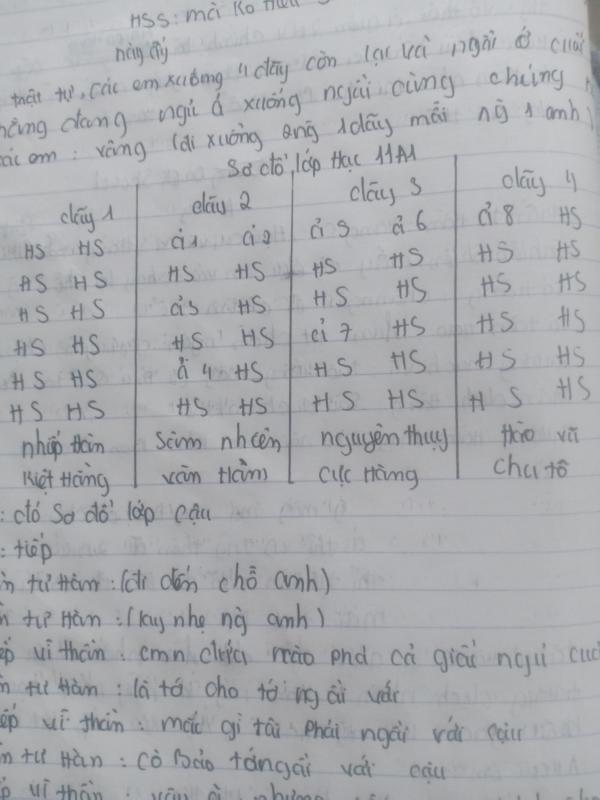 HSS: mãi ko hiểu
này ấy
trật tự, các em xuống 4 dãy còn lại và ngồi ở cuối
đang ngủ ở xuống ngồi cùng chúng
các em: vâng (đi xuống ang 1 dãy mỗi ng 1 anh)
Sơ đồ lớp học 11A1
dãy 1 dãy 2 dãy 3 dãy 4
HS HS ả1 ả2 ả5 ả6 ả8 HS
HS HS HS HS HS HS HS HS
HS HS ả3 HS HS HS HS HS
HS HS HS HS ả7 HS HS HS
HS HS ả4 HS HS HS HS HS
HS HS HS HS HS HS HS HS
nhiếp thần sâm nhiên nguyên thuỵ hào vũ
kiệt Hằng vân Hàm cực Hằng chu tô
: đó sơ đồ lớp cậu
: tiếp
tư Hàn: (đi đến chỗ anh)
tư Hàn: (lay nhẹ ng anh)
vĩ thần: cmn đứa nào phá cả giấc ngủ cuả
tư Hàn: là tớ cho tớ ngồi với
vĩ thần: mắc gì tôi phải ngồi với cậu
tư Hàn: cô bảo tớ ngồi với cậu
vĩ thần: